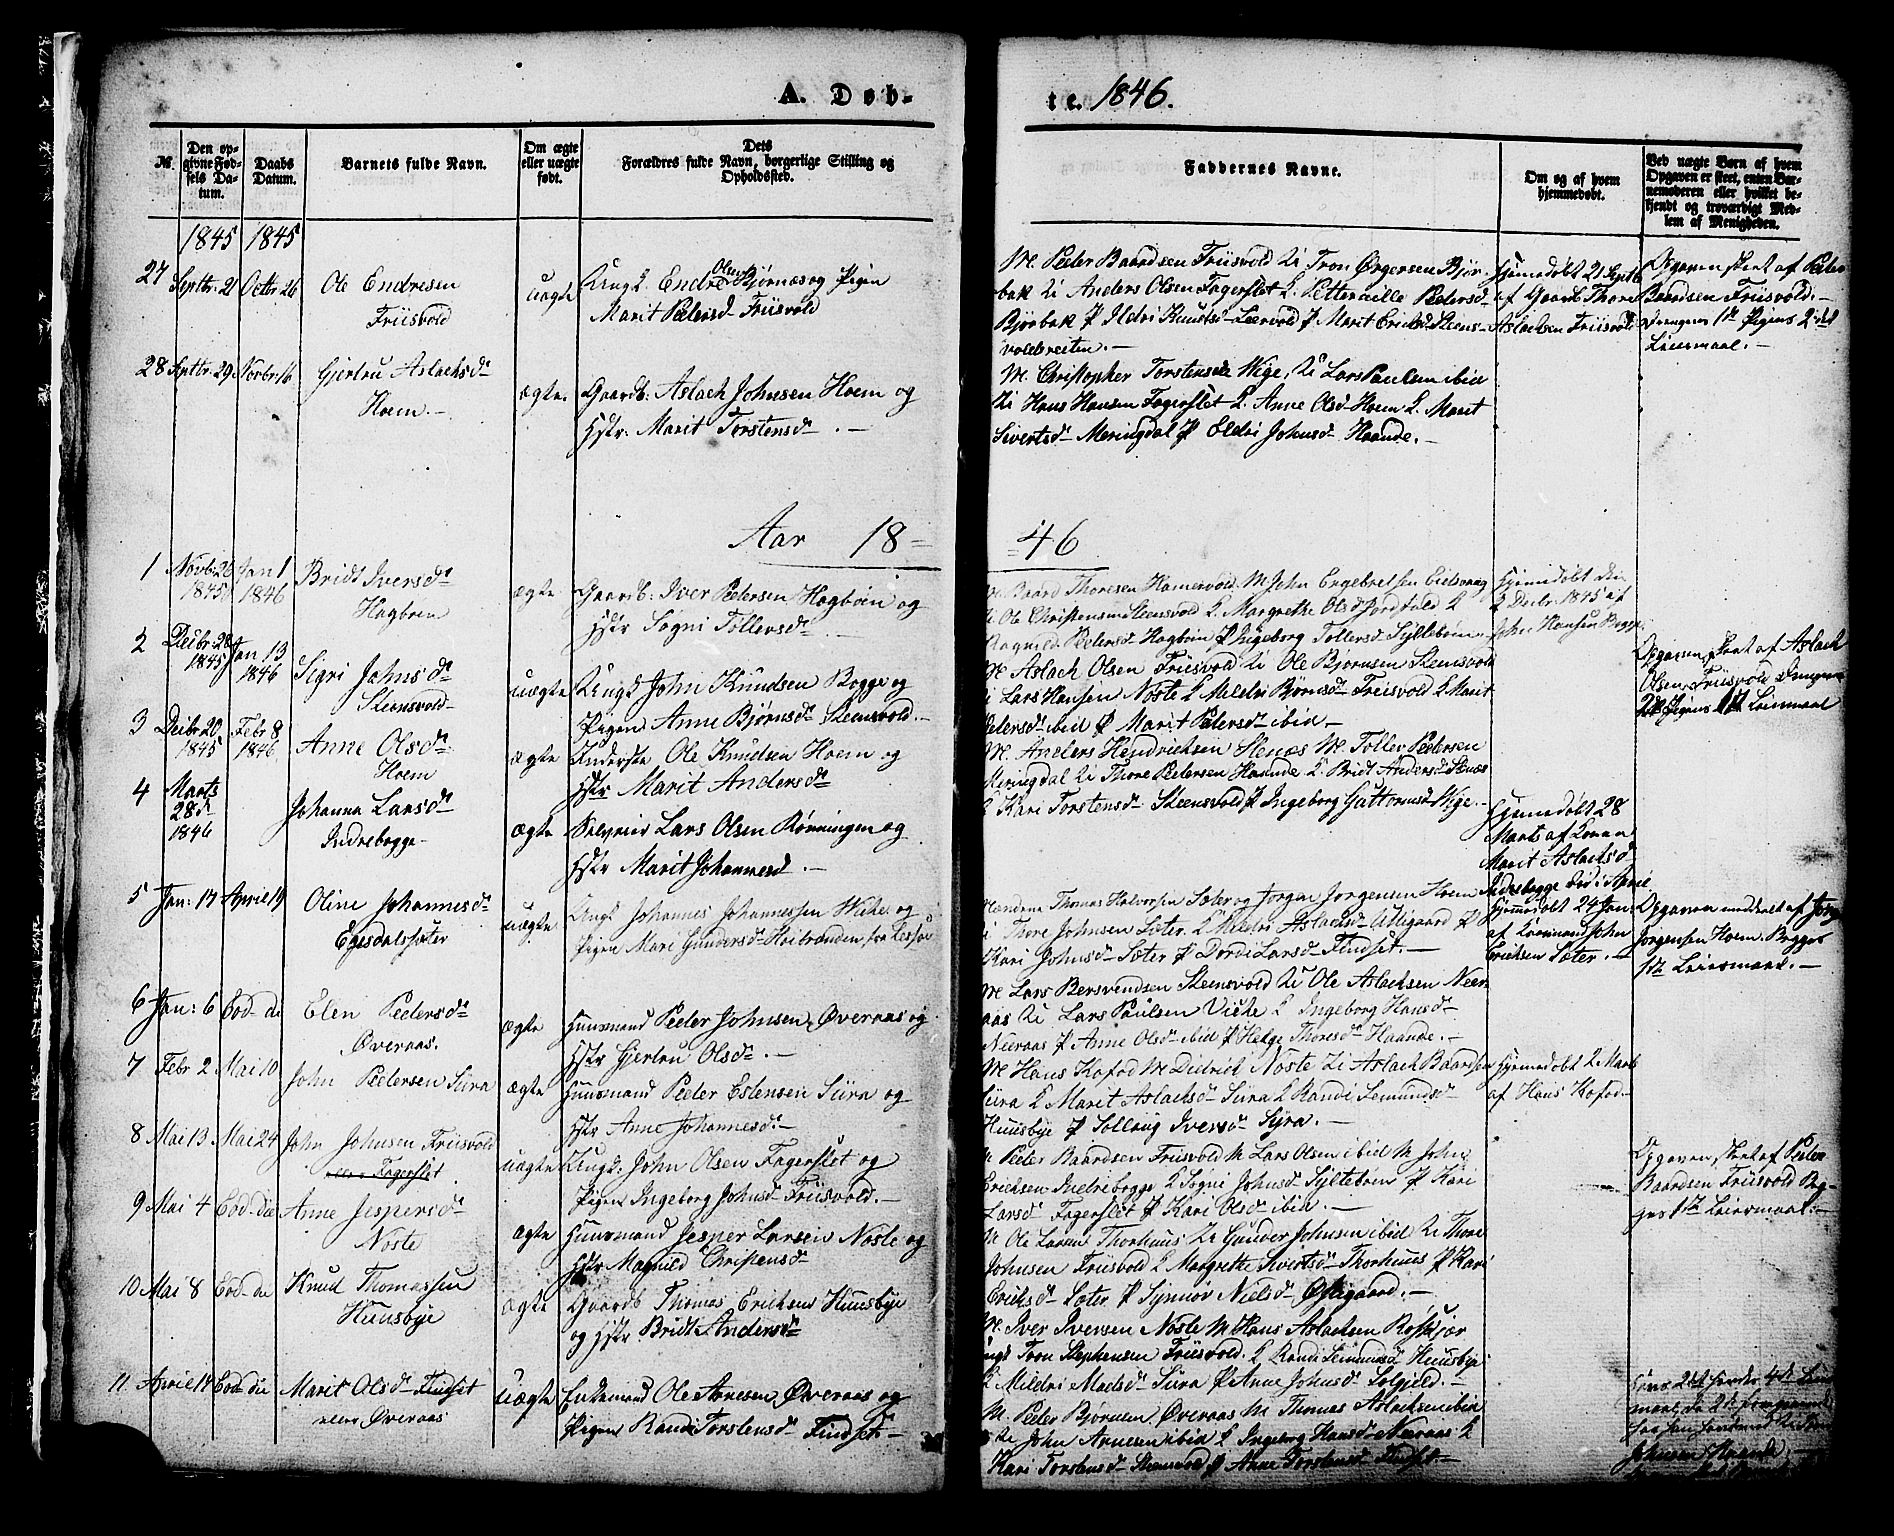 A. Døb-
te. 1846.
№
Den opgivne Fødsels Datum.
Daabs Datum.
Barnets fulde Navn.
Om ægte eller uægte født.
Dets Forældres fulde Navn, borgerlige Stilling og Opholdssted.
Faddernes Navne.
Om og af hvem hjemmedøbt.
Ved uægte Børn af hvem Opgaven er skeet, enten Barnemoderen eller hvilket bekjendt og troværdigt Medlem af Menigheden.
1845 1845
27 Septbr. 21 Octbr 26 Ole Endresen uægte Ungk. Endre Olsen Bjørnaes og Pigen
Friisvold Marit Pedersd Friisvold
M. Peder Baardsen Friisvold Li Tron Ørgersen Bjør-
bak Li Anders Olsen Fagerslet L. Petternille Pedersd
Bjørbak P Ildri Knutsd Leervold P Marit Ericksd Steens-
voldsveiten.
Hjemmedøbt 21 Septb
af Gaardb Thore
Aslachsen Friisvold
Opgaven skeet af Peder
Baardsen Friisvold.
Drengens 1st Pigens 2det
Leiermaal.
28 Septbr. 29 Novbr. 16 Gjertru Aslachsd ægte. Gaardb: Aslach Johnsen Hoem og
Hoem. Hstr: Marit Torstensd
M. Christopher Torstensen Wige, Li Lars Paulsen ibid
Li Hans Hansen Fagerslet L. Anne Olsd Hoem L. Marit
Sivertsd Meringdal P Eldri Johnsd Haande.
Aar 18=
=46
1 Novbr 26 Jan 1 Bridt Iversd ægte Gaardb: Iver Pedersen Hagbøen og
1845 1846 Hagbøen Hstr Sogni Tollersd
M Baard Thoresen Hamervold M John Engebretsen Eidsvaag
Li Ole Christensen Steensvold L Margrethe Olsd Jordfald L
Ragnild Pedersd Hagbøen P Ingeborg Tollersd Syltebøen
Hjemmedøbt den
2 Decbr. 1845 af
John Hansen Bogge
2 Decbr. 28 Jan 13 Sigri Johnsd uægte Ungk John Knudsen Bogge og
1845 1846 Steensvold Pigen Anne Bjørnsd Steensvold.
M Aslach Olsen Friisvold Li Ole Bjørnsen Steensvold
Li Lars Hansen Noste L Meldri Bjørnsd Friisvold L Marit
Pedersd ibid P Marit Pedersd ibid
Opgaven skeet af Aslach
Olsen Friisvold Drengens
Pigens 1st Leiermaal
3 Decbr 20 Febr 8 Anne Olsd ægte Inderste Ole Knudsen Hoem og
1845 1846 Hoem Hstr Marit Andersd
M. Anders Hendrichsen Stenæs M Toller Pedersen
Meringdal Li Thore Pedersen Haande L Bridt Andersd Stenæs
L Kari Torstensd Steensvold P Ingeborg Guttormsd Wige.
4 Marts Johanna Larsd ægte Selveier Lars Olsen Rønningen og
28de 1846 Indrebogge Hstr Marit Johannesd.
Hjemmedøbt 28
Marts af Konen
Marit Aslachsd
Indrebogge død i April
5 Jan: 17 April 19 Oline Johannesd uægte Ungk Johannes Johannessen Wike og
Egesdalssæter Pigen Mari Gundersd Hoibranden fra Lessøe
Mændene Thomas Halvorsen Sæter og Jørgen Jørgensen Hoem
Li Thore Johnsen Sæter. L Meldri Aslachsd Utigaard P
Kari Johnsd Sæter P Dordi Larsd Findset.
Hjemmedøbt 24 Jan:
af Leiermand John
Erichsen Sæter.
Opgaven meddeelt af Jørgen
Jørgensen Hoem. Begges
1ste Leiermaal.
6 Jan: 6 Eod-die Elen Pedersd ægte Huusmand Peder Johnsen, Øveraas og
Øveraas. Hstr Gjertru Olsd.
M Lars Bersvendsen Steensvold Li Ole Aslachsen Neer-
aas Li Lars Paulsen Vicke L Ingeborg Hansd
Neeraas P Anne Olsd ibid P Helge Thoresd Haande.
7 Febr 2 Mai 10 John Pedersen Siira ægte Huusmand Peder Estensen Siira og
Hstr Anne Johannesd.
M Hans Kofod M Didrich Noste Li Aslach Baardsen
Siira L Marit Aslachsd Siira L Randi Semundsd
Huusbye P Solloug Iversd Syra.
Hjemmedøbt 2 Marts
af Hans Kofod
8 Mai 13 Mai 24 John Johnsen Friisvold uægte Ungk: John Olsen Fagerslet og
eller Fagerslet Pigen Ingeborg Johnsd Friisvold.
M Peder Baardsen Friisvold M Lars Olsen ibid M John
Erichsen Indrebogge L Sogni Johnsd Syltebøen P Kari
Larsd Fagerslet P Kari Olsd ibid.
Opgaven skeet af Peder
Baardsen Friisvold Beg-
ges 1ste Leiermaal.
9 Mai 4 Eod-die Anne Jespersd ægte Huusmand Jesper Larsen Noste og
Noste Hstr Magnild Christensd
M Ole Larsen Thorhuus Li Gunder Johnsen ibid Li Thore
Johnsen Friisvold L Margrethe Sivertsd Thorhuus P Kari
Erichsd Sæter P Synnør Nielsd Østigaard.
10 Mai 8 Eod-die Knud Thomassen ægte Gaardb Thomas Erichsen Huusbye
Huusbye og Hstr Bridt Andersd
M. Iver Iversen Noste M Hans Aslachsen Roskjør
Ungk Tron Stephensen Friisvold. L Randi Semundsd Huusbye
L Meldri Madsd Siira P Anne Johnsd Solgjeld.
11 April 14 Eod-die Marit Olsd Findset uægte Enkemand Ole Arnesen Øveraas og
eller Øveraas Pigen Randi Torstensd Findset
M. Peder Bjørnsen Øveraas M Thomas Aslachsen ibid
Li John Arnesen ibid L Ingeborg Hansd Neeraas L
Kari Torstensd Steensvold P Anne Torstensd Findset